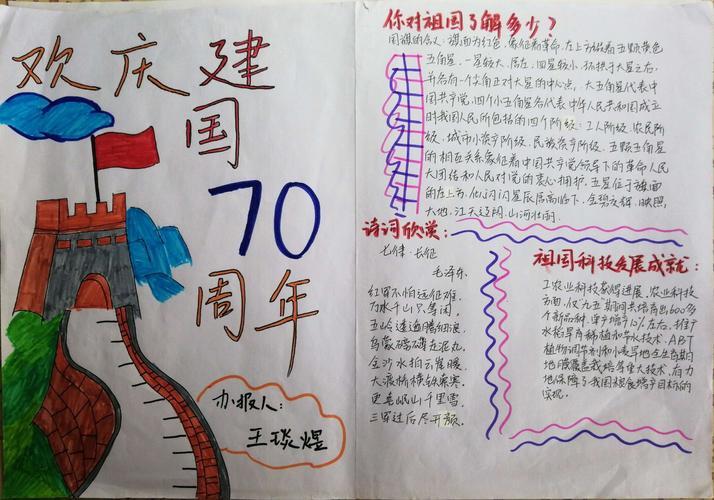 欢庆建
国
70
周年
办报人:
王琰煜
你对祖国了解多少?
国旗的含义:旗面为红色,象征着革命,左上方缀着五颗黄色
五角星,一星较大,居左,四星较小,环拱于大星之右,
并各有一个角正对大星的中心点,大五角星代表中
国共产党,四个小五角星各代表中华人民共和国成立
时我国人民所包括的四个阶级:工人阶级、农民阶
级、城市小资产阶级、民族资产阶级,五颗五角星
的相互关系象征着中国共产党领导下的革命人民
大团结和人民对党的衷心拥护,五星位于旗面
的左上方,似闪闪星辰居高临下,金碧之辉,映照
大地,江天辽阔,山河壮丽。
诗词欣赏:
七律·长征
毛泽东
红军不怕远征难,
万水千山只等闲。
五岭逶迤腾细浪,
乌蒙磅礴走泥丸。
金沙水拍云崖暖,
大渡桥横铁索寒。
更喜岷山千里雪,
三军过后尽开颜。
祖国科技发展成就:
工农业科技蒸腾进展,农业科技
方面,仅九五期间共培育出600多
个新品种,单产增产12%左右,推广
水稻旱育稀植和节水技术,ABT
植物调节剂和小麦旱地全生育期
地膜覆盖栽培等重大技术,有力
地保障了我国粮食增产目标的
实现。